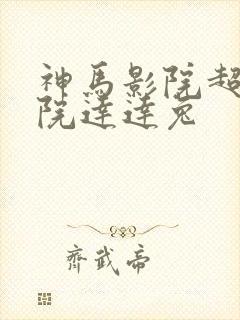 神馬影院超
院達達兔
齊武帝